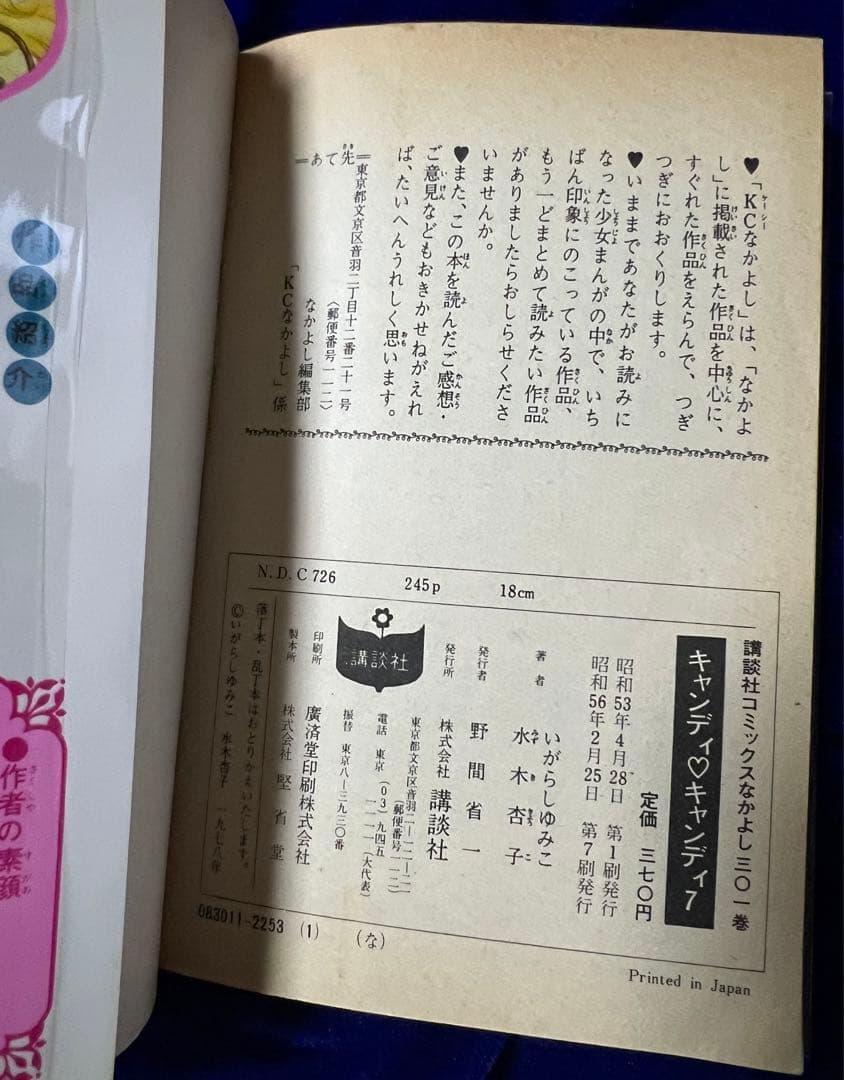 ♥「KCなかよし」は、「なかよ
し」に掲載された作品を中心に、
すぐれた作品をえらんで、つぎ
つぎにおおくりします。
♥いままであなたがお読みに
なった少女まんがの中で、いち
ばん印象にのこっている作品、
もう一どまとめて読みたい作品
がありましたらおしらせくださ
いませんか。
♥また、この本を読んだご感想・
ご意見などもおきかせねがえれ
ば、たいへんうれしく思います。
＝あて先＝
東京都文京区音羽二丁目十二番二十一号
〈郵便番号一一二〉
なかよし編集部
「KCなかよし」係
N.D.C 726 245p 18cm
講談社コミックスなかよし 三〇一巻
キャンディ♡キャンディ 7
定価 三七〇円
昭和53年4月28日 第1刷発行
昭和56年2月25日 第7刷発行
著者 いがらしゆみこ
水木杏子
発行者 野間省一
発行所 株式会社 講談社
東京都文京区音羽二―一二―二一
(郵便番号一一二)
電話 東京(03)九四五
一一一一(大代表)
振替 東京八―三九三〇番
講談社
印刷所 廣済堂印刷株式会社
製本所 株式会社 堅省堂
落丁本・乱丁本はおとりかえいたします。
©いがらしゆみこ 水木杏子 一九七八年
083011-2253 (1) (な)
Printed in Japan
作品紹介
●作者の素顔